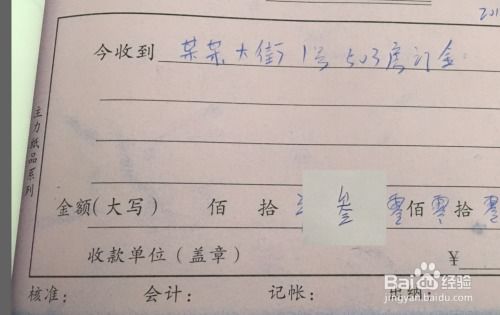 201
今收到 某某大街1号503房订金
主力纸品系列
金额(大写) 佰 拾 叁 零佰零拾零
收款单位(盖章) ¥
核准: 会计: 记帐: 出纳:
Baidu经验
jingyan.baidu.com